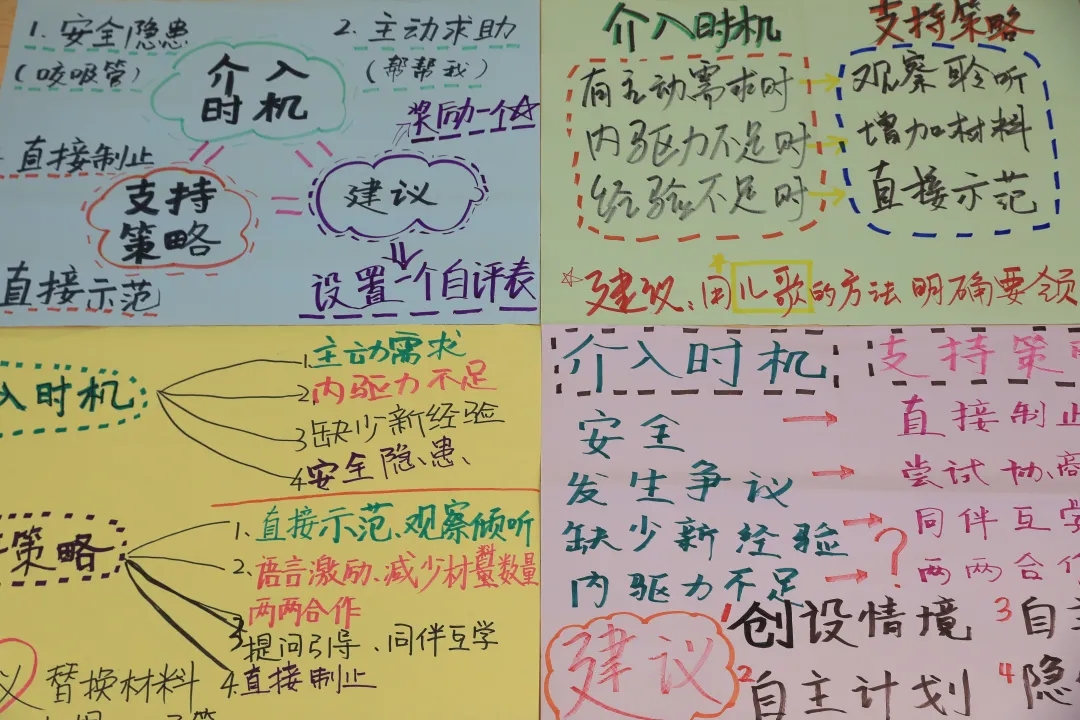 1. 安全隐患
(咳吸管)
2. 主动求助
(帮帮我)
介入
时机
奖励一个☆
直接制止
支持
策略
建议
直接示范
设置一个自评表
介入时机
支持策略
有主动需求时
观察聆听
内驱力不足时
增加材料
经验不足时
直接示范
☆建议:用儿歌的方法明确要领
入时机
1.主动需求
2.内驱力不足
3缺少新经验
4安全隐患、
策略
1、直接示范、观察倾听
2、语言激励、减少材料数量
两两合作
3提问引导、同伴互学
4.直接制止
议
替换材料
介入时机
支持策
安全
直接制止
发生争议
尝试协商
缺少新经验
同伴互学
内驱力不足
?
两两合作
建议
1创设情境
3自主
2自主计划
4隐